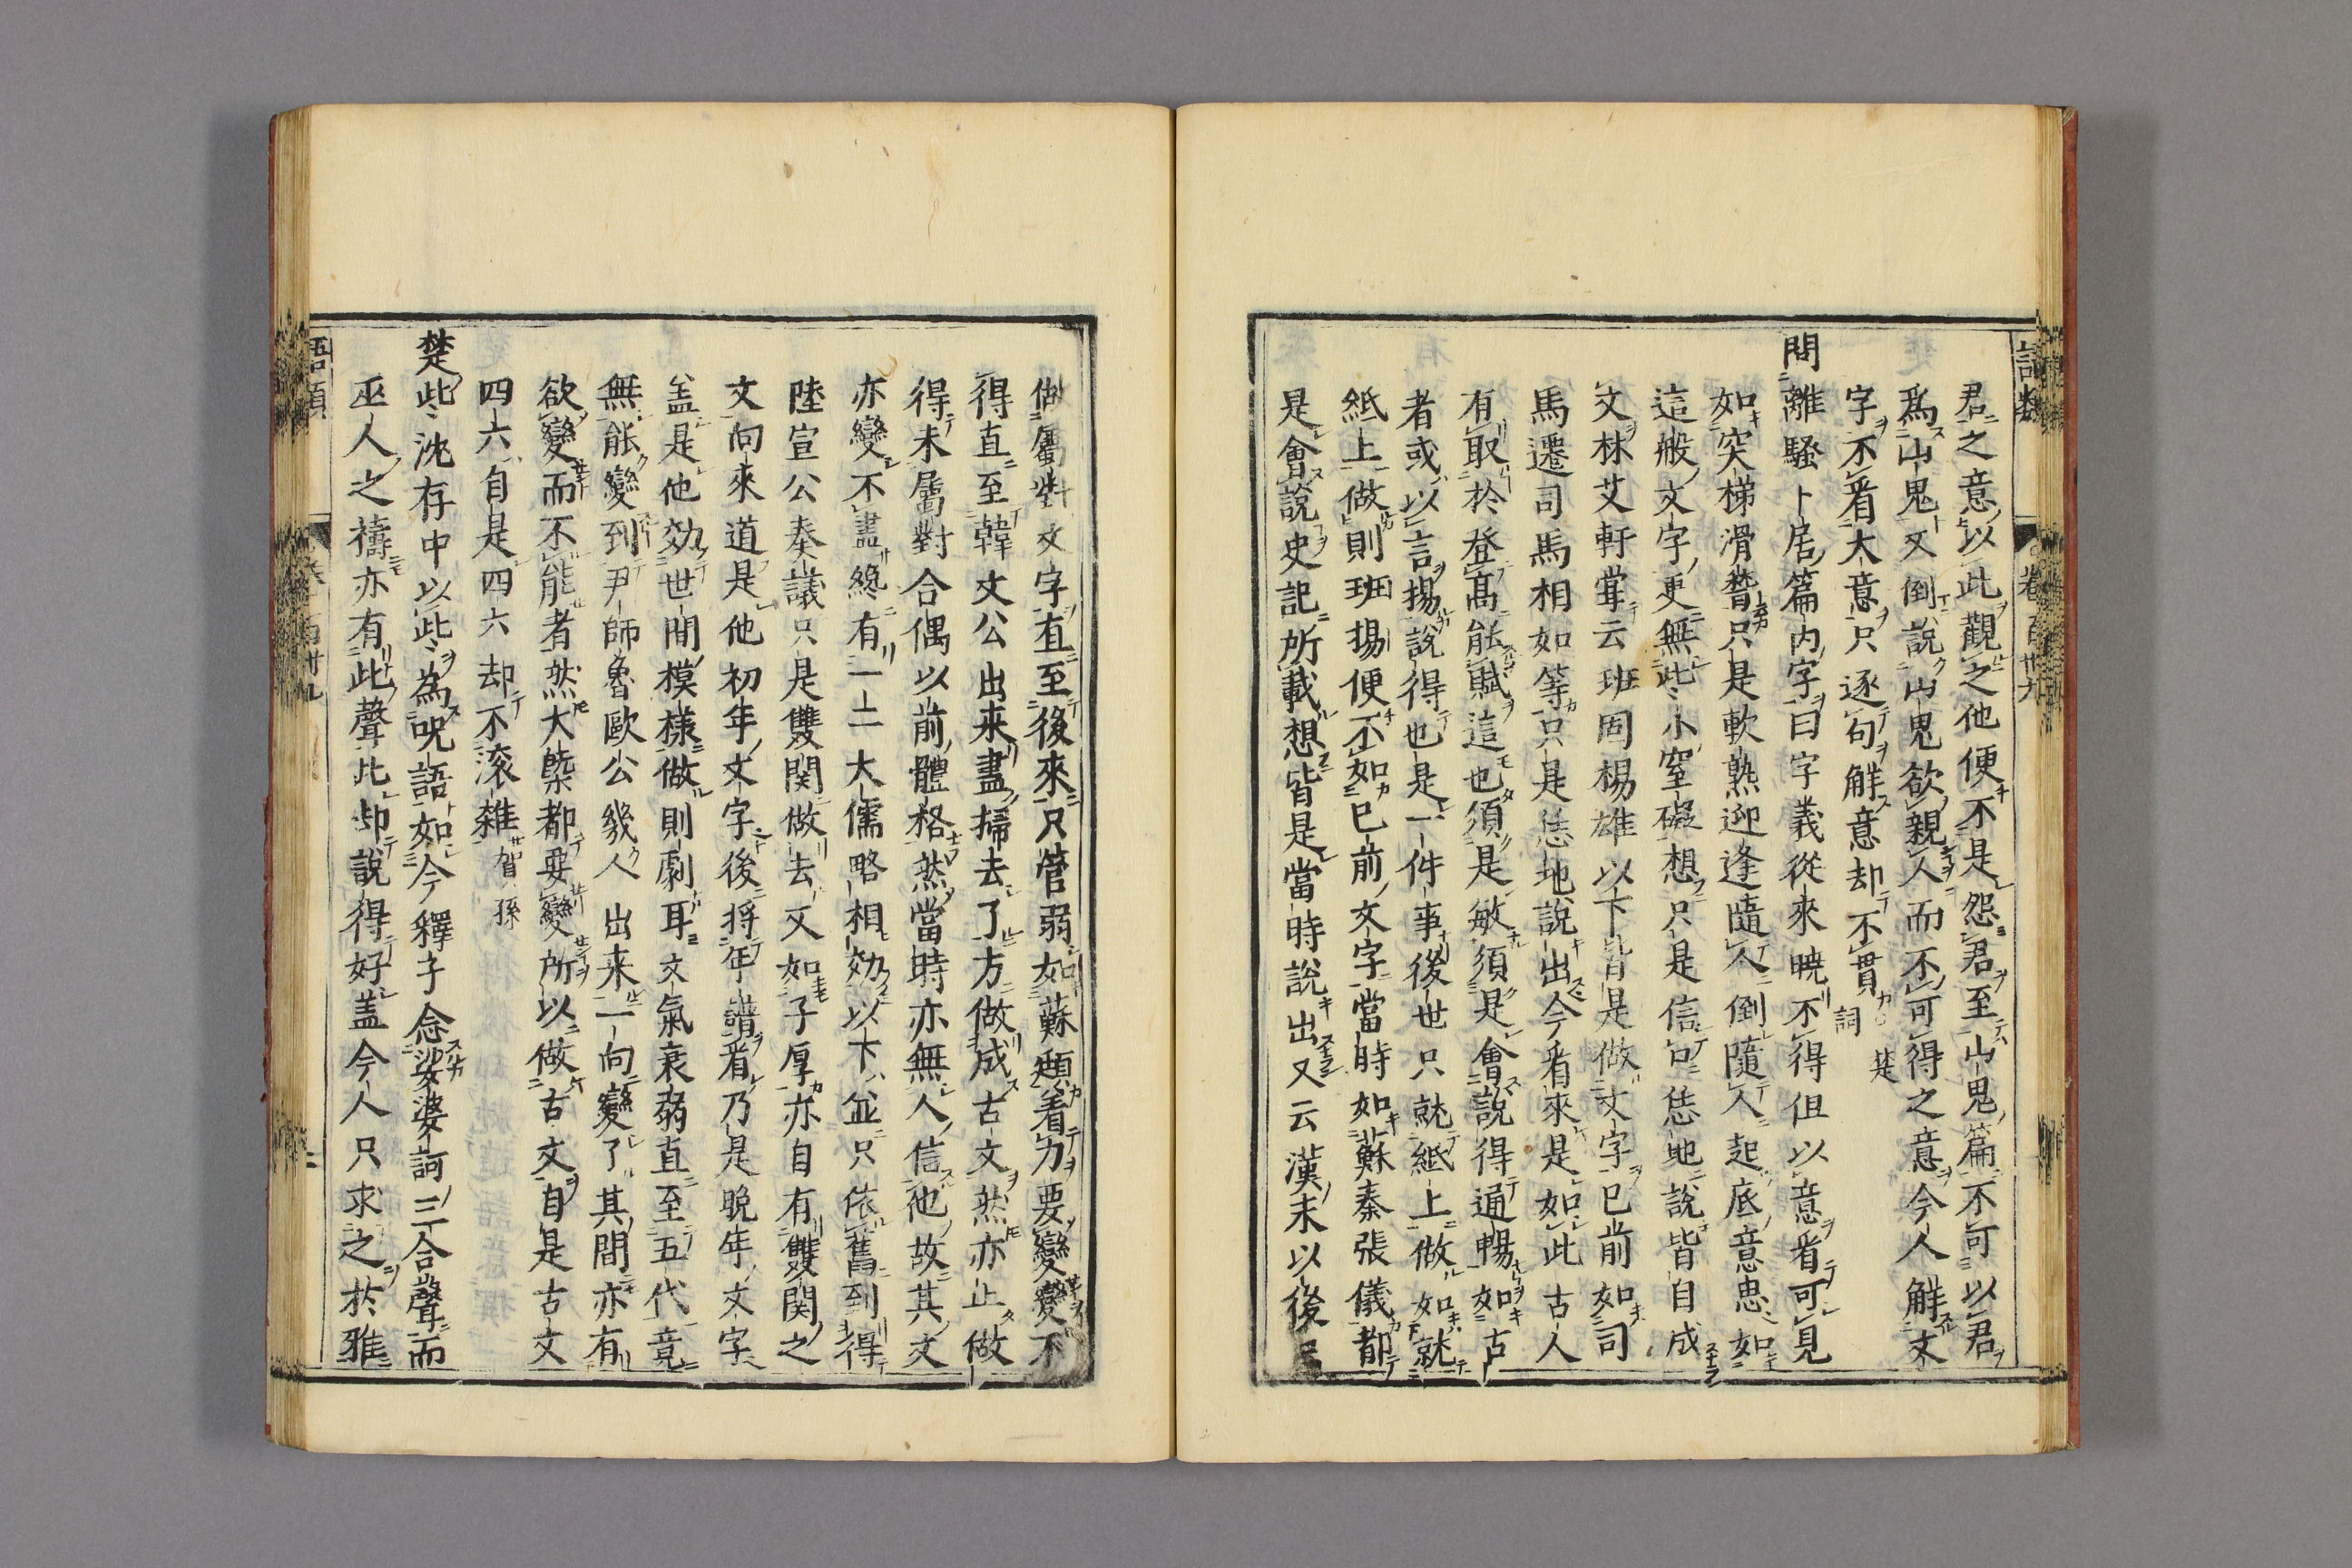 語類 卷百卅九
君之意以此觀之他便不是怨君至山鬼篇不可以君
爲山鬼又倒說山鬼欲親人而不可得之意今人解文
字不看大意只逐句解意却不貫 楚詞
問離騷卜居篇內字曰字義從來曉不得但以意看可見
如突梯滑稽只是軟熟迎逢隨人倒隨人起底意思如
這般文字更無些小窒礙想只是信口恁地說皆自成
文林艾軒嘗云班固楊雄以下皆是做文字已前如司
馬遷司馬相如等只是恁地說出今看來是如此古人
有取於登高能賦這也須是敏須是會說得通暢如古
者或以言揚說得也是一件事後世只就紙上做如就
紙上做則班揚便不如已前文字當時如蘇秦張儀都
是會說史記所載想皆是當時說出又云漢末以後只
做屬對文字直至後來只管弱如蘇頲着力要變變不
得直至韓文公出來盡掃去了方做成古文然亦止做
得未屬對合偶以前體格然當時亦無人信他故其文
亦變不盡纔有一二大儒略相效以下並只依舊到得
陸宣公奏議只是雙関做去又如子厚亦自有雙関之
文向來道是他初年文字後將年譜看乃是晚年文字
盖是他効世間模樣做則劇耳文氣衰弱直至五代竟
無能變到尹師魯歐公幾人出来一向變了其間亦有
欲變而不能者然大槩都要變所以做古文自是古文
四六自是四六却不滚雜 賀孫
楚些沈存中以些為呪語如今釋子念娑婆訶三合聲而
巫人之禱亦有此聲此却說得好盖今人只求之於雅
語類 百卅九